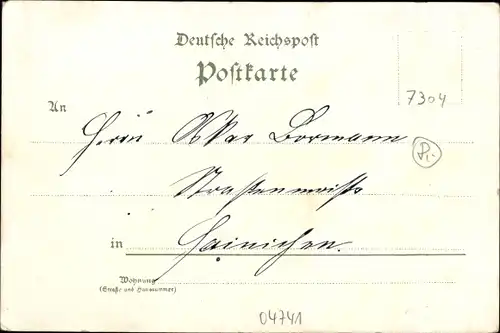 Deutsche Reichspost
Postkarte
7304
An
Herrn Oskar Bormann
P.
Straßenmeister
in Hainichen.
Wohnung
(Straße und Hausnummer)
04741